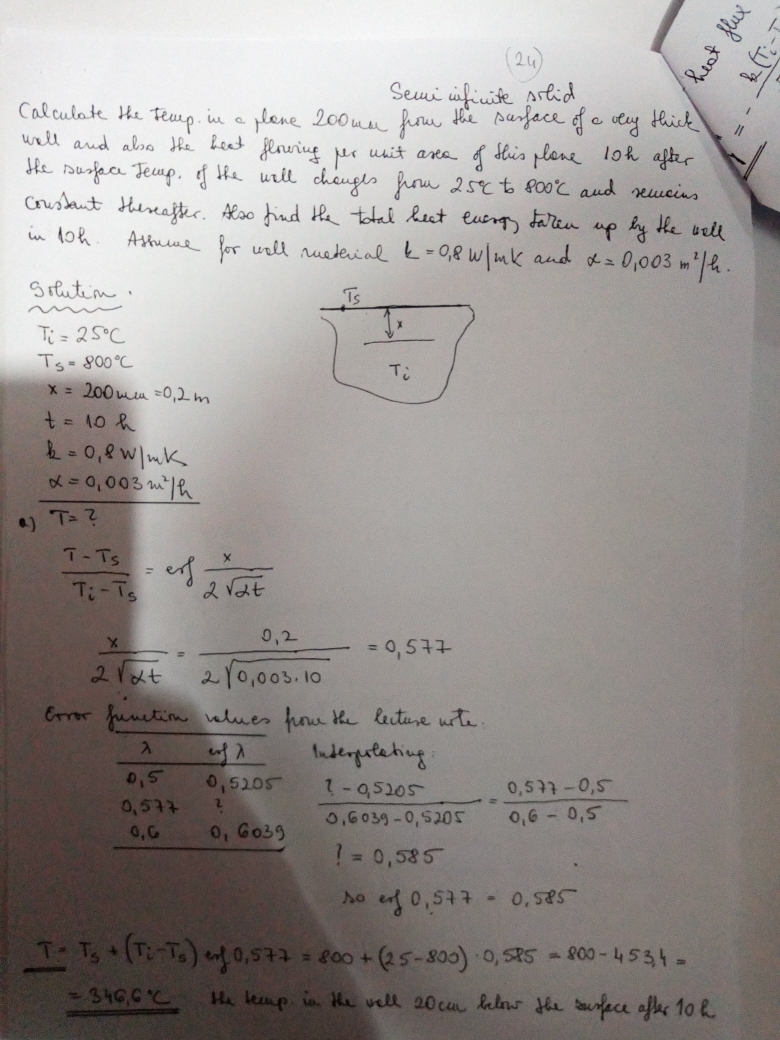 (24)
Semi infinite solid
Calculate the temp. in a plane 200mm from the surface of a very thick
wall and also the heat flowing per unit area of this plane 10h after
the surface temp. of the wall changes from 25°C to 800°C and remains
constant thereafter. Also find the total heat energy taken up by the wall
in 10h. Assume for wall material k = 0,8 W/mK and α = 0,003 m²/h.
heat flux
k(Ti-T
Solution.
Ti = 25°C
Ts = 800°C
x = 200mm = 0,2 m
t = 10 h
k = 0,8 W/mK
α = 0,003 m²/h
Ts
x
Ti
a) T = ?
T - Ts / Ti - Ts = erf x / 2√αt
x / 2√αt = 0,2 / 2√0,003·10 = 0,577
Error function values from the lecture note:
λ erf λ
0,5 0,5205
0,577 ?
0,6 0,6039
Interpolating:
? - 0,5205 / 0,6039 - 0,5205 = 0,577 - 0,5 / 0,6 - 0,5
? = 0,585
so erf 0,577 = 0,585
T = Ts + (Ti - Ts) erf 0,577 = 800 + (25 - 800) · 0,585 = 800 - 453,4 =
= 346,6°C the temp. in the wall 20cm below the surface after 10 h